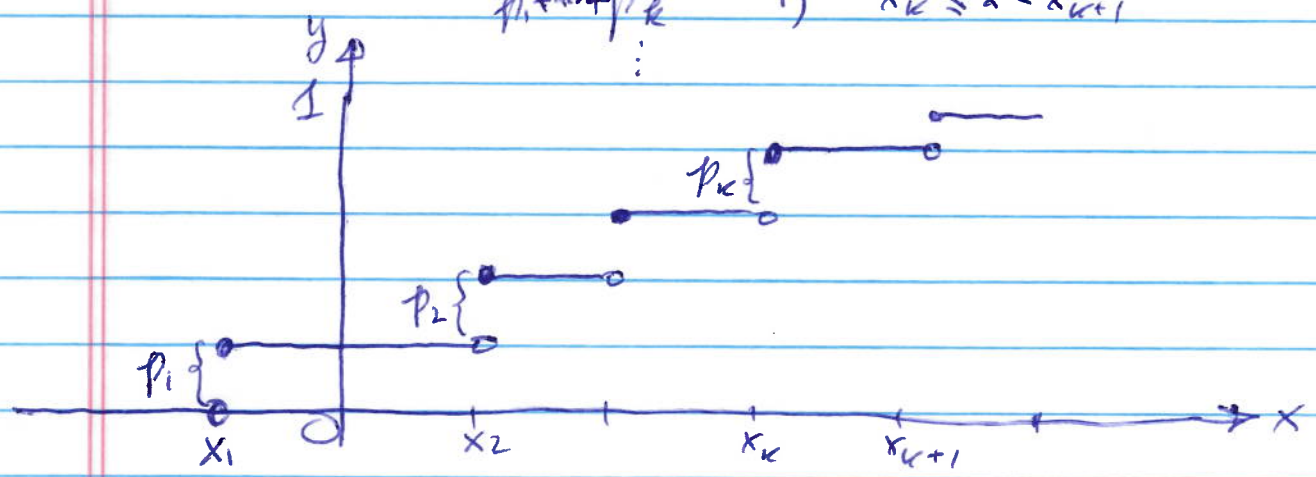 p₁+...+p_k , x_k ≤ x < x_{k+1}
⋮
y
1
p_k
p₂
p₁
O x
x₁ x₂ x_k x_{k+1}